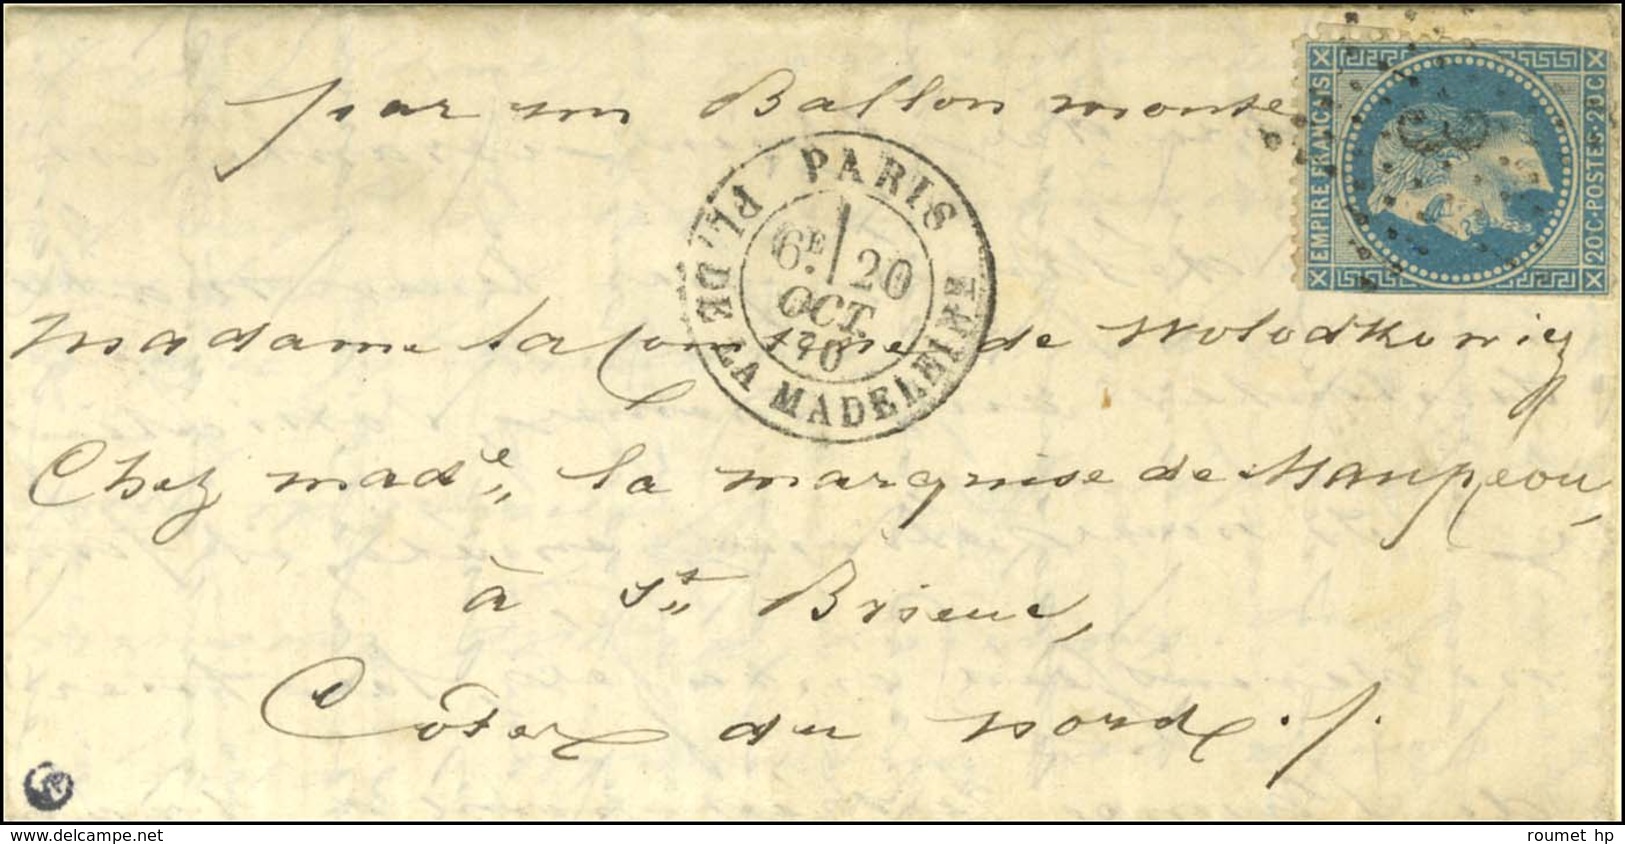 par un Ballon monte
EMPIRE FRANÇAIS
20 C · POSTES · 20 C
PARIS
PL. DE LA MADELEINE
6E 20
OCT.
70
madame la Comtesse de Wolodkowicz
Chez made la marquise de Maupeou,
à St Brieuc,
Côtes du nord.
www.delcampe.net
roumet hp